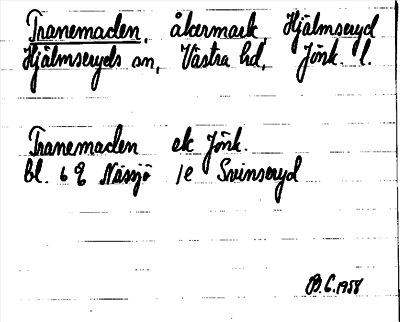 Tranemaden, åkermark, Hjälmseryd
Hjälmseryds sn, Västra hd, Jönk. l.
Tranemaden ek Jönk.
bl. 6 E Nässjö 1e Svinseryd
B.C. 1958